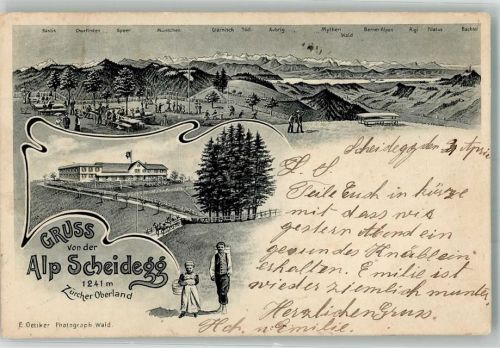 Säntis Churfirsten Speer Mürtschen Glärnisch Tödi Aubrig Mythen Berner-Alpen Rigi Pilatus Bachtel
Wald
Scheidegg den 3. April
L. S.
Teile Euch in kürze
mit dass wir
gestern Abend ein
gesundes Knäblein
erhalten. Emilie ist
wieder ziemlich munter
Herzlichen Gruss.
Hch. u Emilie.
GRUSS
von der
Alp Scheidegg
1241 m
Zürcher Oberland
E. Oetiker Photograph Wald.